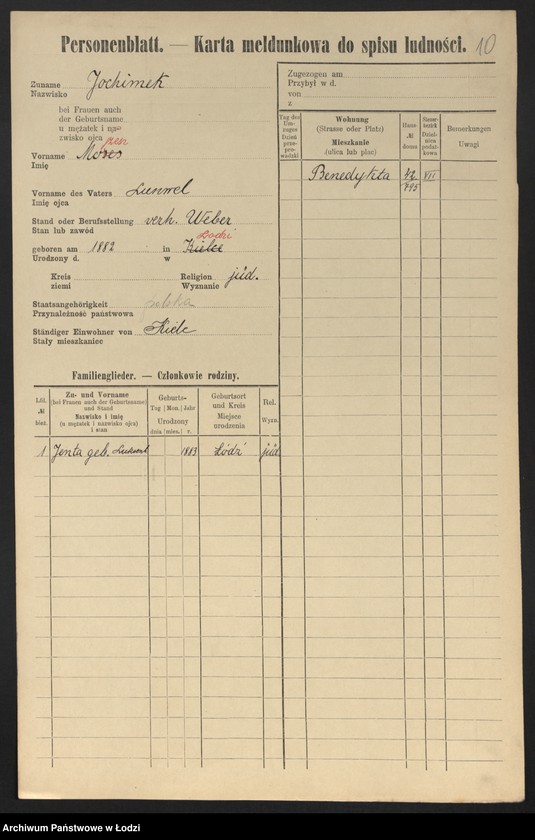 Personenblatt. — Karta meldunkowa do spisu ludności. 10
Zuname
Nazwisko Jochimek
bei Frauen auch
der Geburtsname
u mężatek i na-
zwisko ojca
Vorname
Imię
Vorname des Vaters
Imię ojca
Stand oder Berufsstellung verh. Weber
Stan lub zawód
geboren am 1882 in Kielce
Urodzony d. w
Kreis Religion jüd.
ziemi Wyznanie
Staatsangehörigkeit polska
Przynależność państwowa
Ständiger Einwohner von Kielc
Stały mieszkaniec
Zugezogen am
Przybył w d.
von
z
Tag des Um-zuges Dzień prze-pro-wadzki
Wohnung
(Strasse oder Platz)
Mieszkanie
(ulica lub plac)
Haus- № domu
Bemerkungen
Uwagi
Benedykta VII
Familienglieder. — Członkowie rodziny.
Lfd. № bież.
Zu- und Vorname
(bei Frauen auch der Geburtsname)
und Stand
Nazwisko i imię
(u mężatek i nazwisko ojca)
i stan
Geburts-
Tag Mon. Jahr
Urodzony
dnia mies. r.
Geburtsort
und Kreis
Miejsce
urodzenia
Rel.
Wyzn.
1 Jenta geb. 1883 Łódź jüd
Archiwum Państwowe w Łodzi